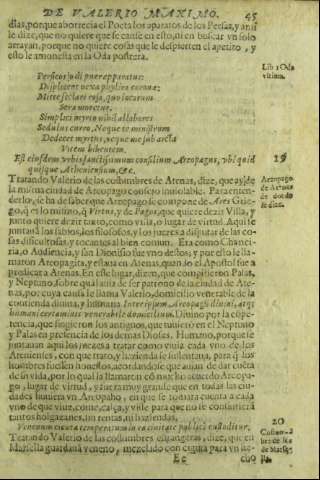 DE VALERIO MAXIMO. 45
dias, porque aborrecia el Poeta los aparatos de los Persas, y ansi
le dize, que no quiere que se canse en esto, ni en buscar vn solo
arrayan, porque no quiere cosas que le despierten el apetito, y
esto le amonesta en la Oda postrera.
Lib 1 Oda
vltima.
Persicos odi puer apparatus:
Displicent nexa phylira corona:
Mitte sectari rosa, quo locorum
Sera moretur.
Simplici myrto nihil allabores
Sedulus curo, Neque te ministrum
Dedecet myrtus, neque me sub arcta
Vitem bibentem.
Est eiusdem vrbis sanctissimum consilium Areopagus, vbi quid
quisque Atheniensium, &c.
19
Areopago
de Atenas
de donde
se dize.
Tratando Valerio de las costumbres de Atenas, dize, que auia de
la misma ciudad de Areopago consejo inuiolable. Para enten-
derlo, se ha de saber que Areopago se compone de Ares Grie-
go, que es lo mismo, q Virtus, y de Pagos, que quiere dezir Villa, y
junto quiere dezir tanto, como villa, o lugar de virtud. Aqui se
juntaua los sabios, los filosofos, y los juezes a disputar de las co-
sas dificultosas, y tocantes al bien comun. Era como Chanci-
ria, o Audiencia, y san Dionisio fue vno dellos, y por esto le lla-
maron Areopagita, y estaua en Atenas, quando el Apostol fue a
predicar a Atenas. En este lugar, dizen, que compitieron Palas,
y Neptuno sobre qual auia de ser patrono de la ciudad de Ate-
nas, por cuya causa le llama Valerio, domicilio venerable de la
contienda diuina, y humana
humani certaminis venerabile domicilium. Diuino por la côpe-
tencia, que fingieron los antiguos, que tuuierô en el Neptuno
y Palas en presencia de los demas Dioses. Humano, porque se
juntauan aqui los juezes a tratar como viuia cada vno de los
Atenienses, con que trato, y hazienda se sustentaua, para q los
hombres fuessen honestos, acordandose que auian de dar cuêta
de su vida, por lo qual la llamaron cô mucho acuerdo Areopa-
go, lugar de virtud, y fuera muy grande que en todas las ciu-
dades huuiera vn Areopago, en que se tomara cuenta a cada
vno de que viue, come, calça, y viste para que no se consintiera
tantos holgazanes, sin rentas, ni haziendas.
Venenum cicuta temperatum in ea ciuitate publicè custoditur.
20
Costum-
bre de los
de Marse-
lla.
Tratando Valerio de las costumbres estrangeras, dize, que en
Marsella guardauã veneno, mezclado con ciguta para vn ne-
Ee